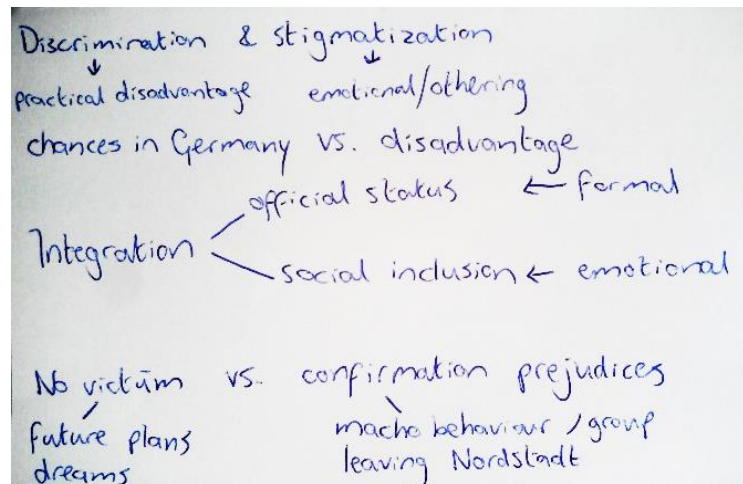 Discrimination & stigmatization
↓ ↓
practical disadvantage emotional/othering
chances in Germany vs. disadvantage
official status ← formal
Integration
social inclusion ← emotional
No victim vs. confirmation prejudices
future plans macho behaviour / group
dreams leaving Nordstadt